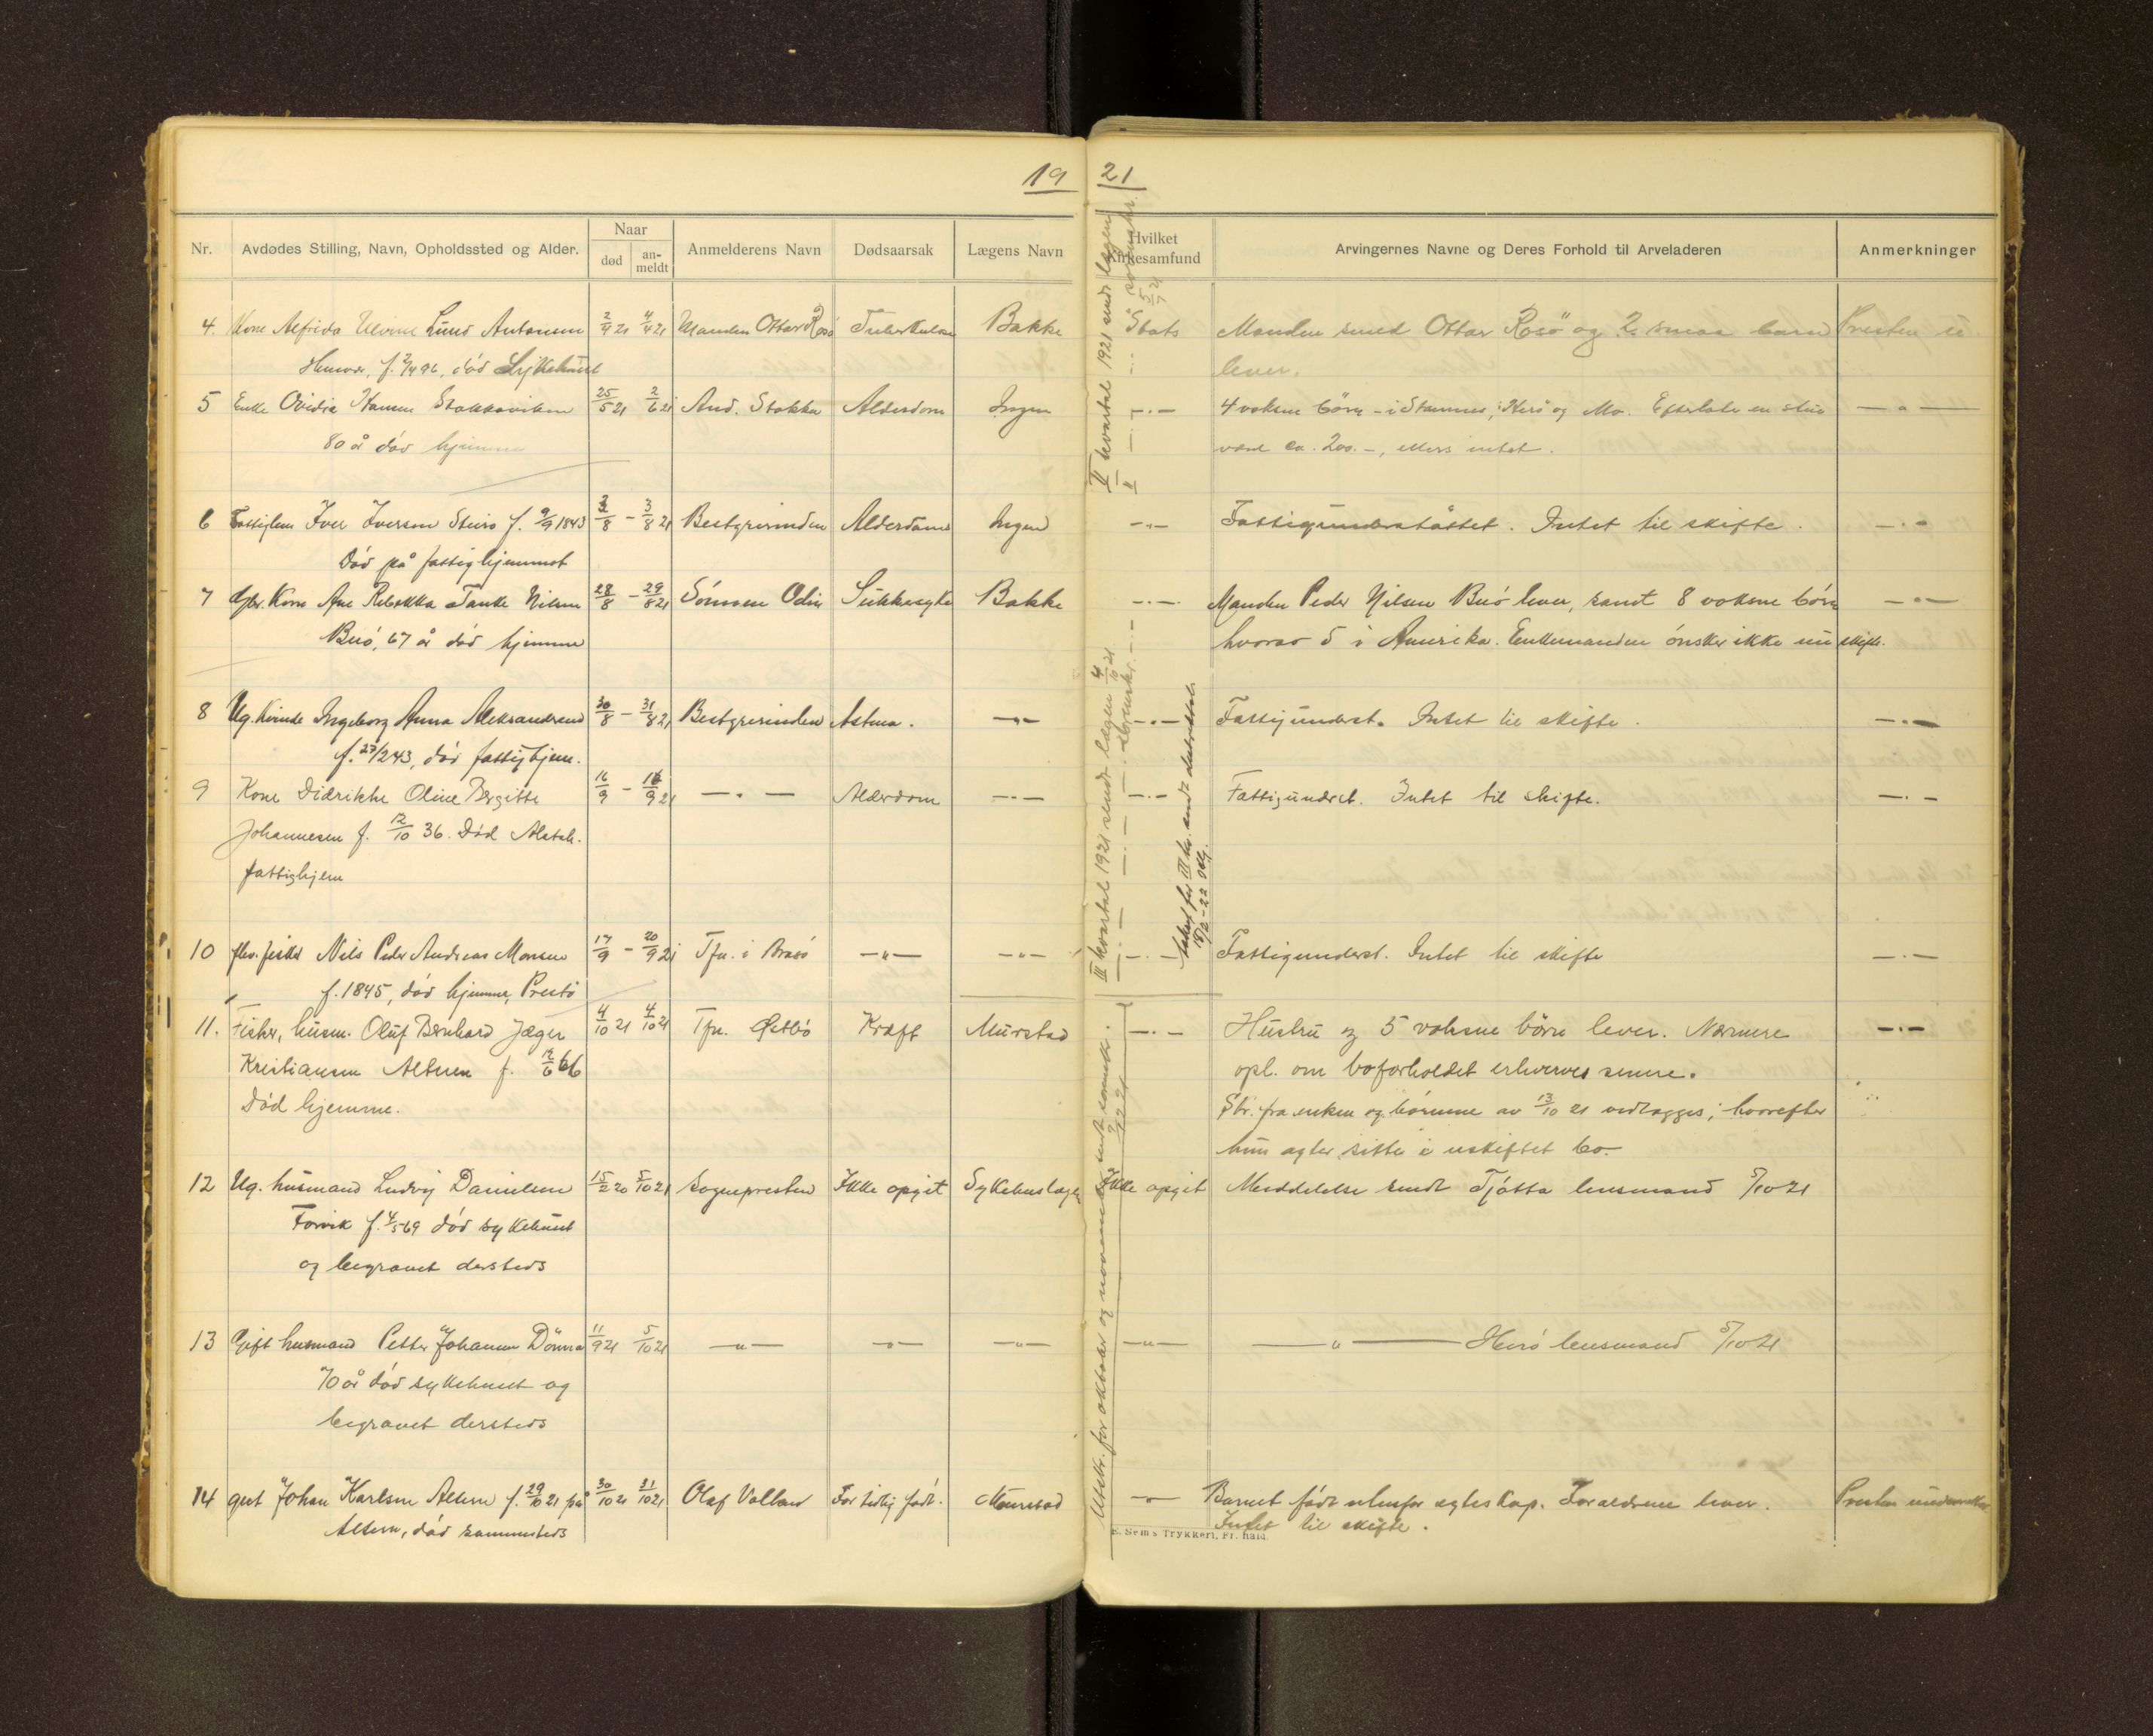 19 21
Nr. Avdødes Stilling, Navn, Opholdssted og Alder. Naar død an-meldt Anmelderens Navn Dødsaarsak Lægens Navn Hvilket Kirkesamfund Arvingernes Navne og Deres Forhold til Arveladeren Anmerkninger
4. Kone Alfrida Lund Antonsen 2/9 21 4/4 21 Manden Ottar Rosö Tuberkulose Bakke Stats Manden smed Ottar Rosö og 2 smaa barn Presten u.
død Sykehuset lever.
5 Enke Ovidia Hansen Stokkaviken 25/5 21 2/6 21 And. Stokka Alderdom Ingen —"— 4 voksne børn - i Stamnes, Herö og Mo. Efterlate en stue —"—
80 år död hjemme værd ca. 200.-, ellers intet.
6 Fattiglem Iver Iversen f. 9/9 1843 3/8 – 3/8 21 Bestyrerinden Alderdom Ingen —"— Fattigunderstöttet. Intet til skifte. —"—
Död på fattighjemmet
7 Gbr. Kone Ane Rebekka Tanke Nilsen 28/8 – 29/8 21 Sönnen Odin Sukkersyke Bakke —"— Manden Peder Nilsen Buö lever, samt 8 voksne börn —"—
Buö, 67 år död hjemme hvorav 5 i Amerika. Enkemanden önsker ikke nu skifte.
8 Ug. kvinde Ingeborg Anna Aleksandersen 30/8 – 31/8 21 Bestyrerinden Astma. —"— —"— Fattigunderst. Intet til skifte. —"—
f. 27/2 43, död fattighjem.
9 Kone Didrikke Oline Bergitte 16/9 – 16/9 21 —"— Alderdom —"— —"— Fattigunderst. Intet til skifte. —"—
Johannesen f. 12/10 36. Död Alstah.
fattighjem
10 fhv. fisker Nils Peder Andreas Monsen 17/9 – 20/9 21 Tfn. i Brasö —"— —"— —"— Fattigunderst. Intet til skifte —"—
f. 1845, död hjemme, Prestö
11. Fisker, husm. Oluf Bernhard Jæger 4/10 21 4/10 21 Tfn. Østbö Kræft Murstad —"— Hustru og 5 voksne börn lever. Nærmere —"—
Kristiansen Altern f. 12/6 66 opl. om boforholdet erhverves senere.
Död hjemme. Skr. fra enken og börnene av 13/10 21 vedlægges; hvorefter
hun agter sitte i uskiftet bo.
12 Ug. husmand Ludvig Danielsen 15/2 20 5/10 21 Sognepresten Ikke opgit Sykehuslægen Ikke opgit Meddelelse sendt Tjötta lensmand 5/10 21
Forvik f. 4/5 69 död sykehuset
og begravet dersteds
13 Gift husmand Petter Johansen Dönna 11/9 21 5/10 21 —"— —"— —"— —"— —"— Herö lensmand 5/10 21
70 år död sykehuset og
begravet dersteds
14 gut Johan Karlsen Altern f. 29/10 21 på 30/10 21 31/10 21 Olaf Valland For tidlig födt. Murstad —"— Barnet födt utenfor egteskap. Foraldrene lever. Presten underrettet
Altern, död sammesteds Intet til skifte.
II kvartal 1921 sendt lægen
sorenskr. 5/7 21
III kvartal 1921 sendt lægen 4/10 21
sorenskr.
for III kv. sendt
18/2-22
Utskr. for oktober og november sendt sorenskr.
E. Sem's Trykkeri, Fr.hald.